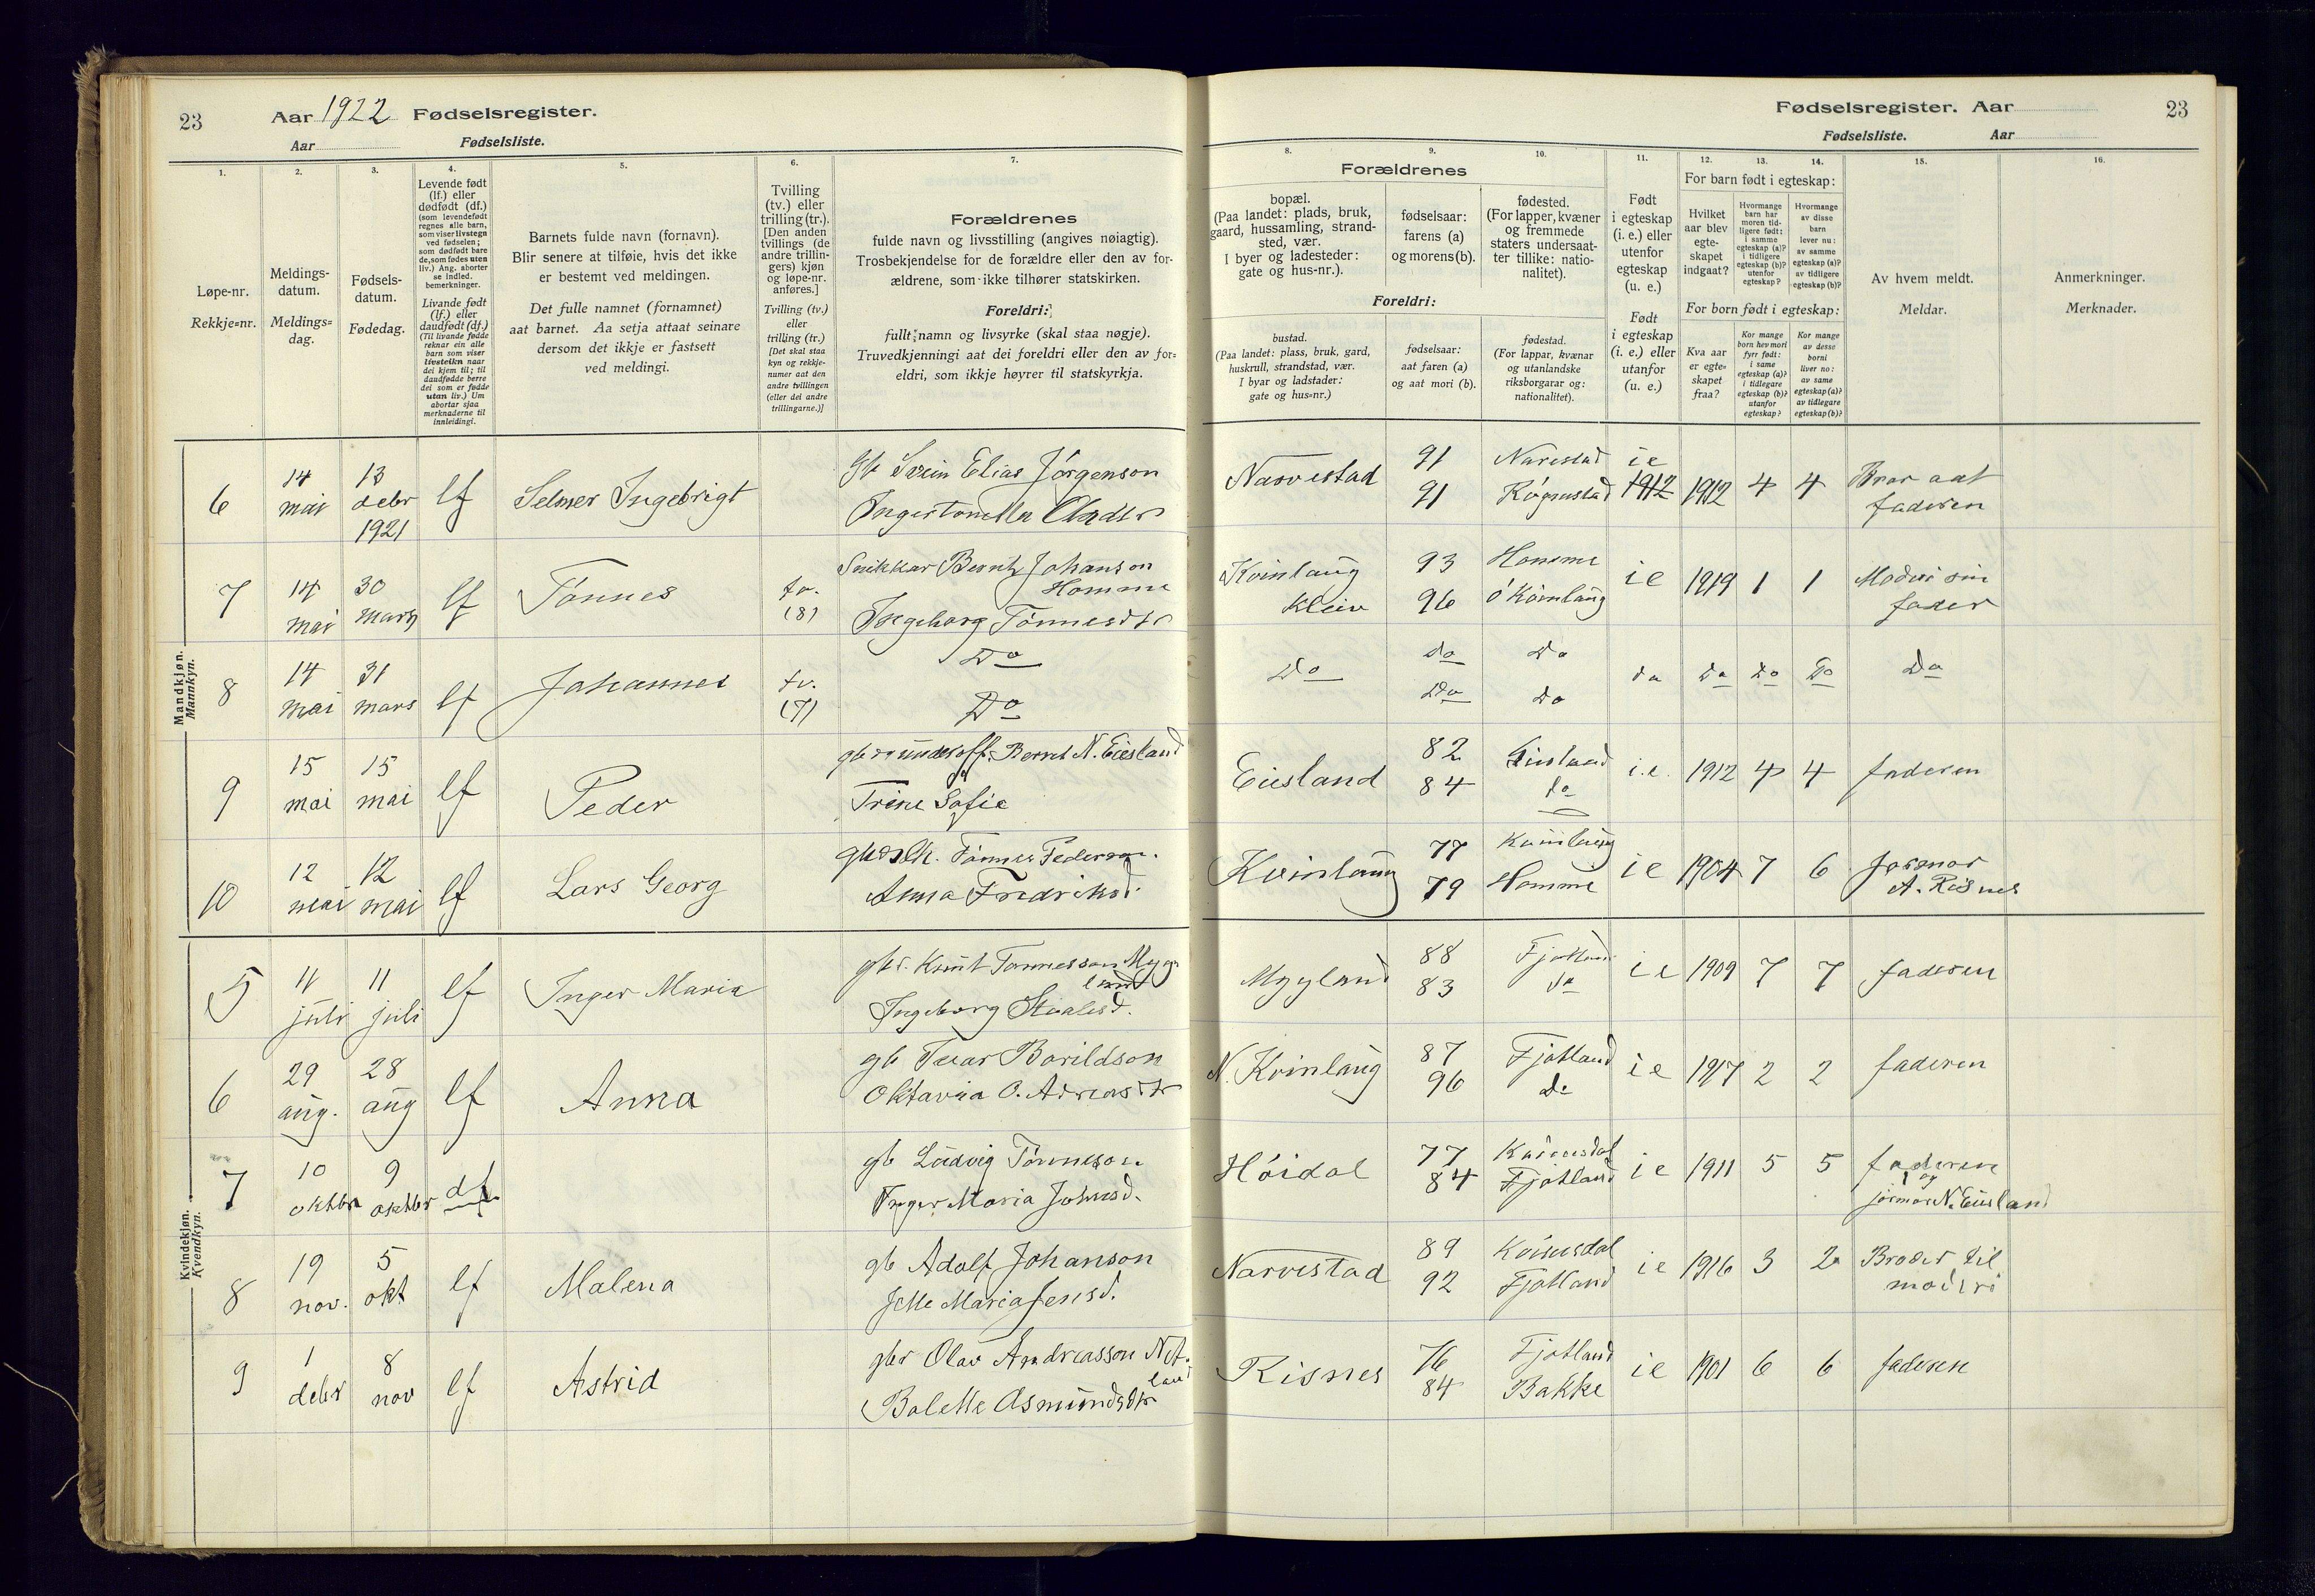 23 Aar 1922 Fødselsregister.
Aar Fødselsliste.
Fødselsregister. Aar 23
Fødselsliste. Aar
1. 2. 3. 4. 5. 6. 7.
Løpe-nr.
Rekkje=nr.
Meldings-
datum.
Meldings=
dag.
Fødsels-
datum.
Fødedag.
Levende født
(lf.) eller
dødfødt (df.)
(som levendefødt
regnes alle barn,
som viser livstegn
ved fødselen;
som dødfødt bare
de, som fødes uten
liv.) Ang. aborter
se indled.
bemerkninger.
Livande født
(lf.) eller
daudfødt (df.)
(Til livande fødde
reknar ein alle
barn som viser
livsteikn naar
dei kjem til; til
daudfødde berre
dei som er fødde
utan liv.) Um
abortar sjaa
merknaderne til
innleidingi.
Barnets fulde navn (fornavn).
Blir senere at tilføie, hvis det ikke
er bestemt ved meldingen.
Det fulle namnet (fornamnet)
aat barnet. Aa setja attaat seinare
dersom det ikkje er fastsett
ved meldingi.
Tvilling
(tv.) eller
trilling (tr.).
[Den anden
tvillings (de
andre trillin-
gers) kjøn
og løpe-nr.
anføres.]
Tvilling (tv.)
eller
trilling (tr.)
[Det skal staa
kyn og rekkje-
numer aat den
andre tvillingen
(eller dei andre
trillingarne.)]
Forældrenes
fulde navn og livsstilling (angives nøiagtig).
Trosbekjendelse for de forældre eller den av for-
ældrene, som ikke tilhører statskirken.
Foreldri:
fullt namn og livsyrke (skal staa nøgje).
Truvedkjenningi aat dei foreldri eller den av for=
eldri, som ikkje høyrer til statskyrkja.
8. 9. 10. 11. 12. 13. 14. 15. 16.
Forældrenes
bopæl.
(Paa landet: plads, bruk,
gaard, hussamling, strand-
sted, vær.
I byer og ladesteder:
gate og hus-nr.).
fødselsaar:
farens (a)
og morens (b).
fødested.
(For lapper, kvæner
og fremmede
staters undersaat-
ter tillike: natio-
nalitet).
Foreldri:
bustad.
(Paa landet: plass, bruk, gard,
huskrull, strandstad, vær.
I byar og ladstader:
gate og hus=nr.)
fødselsaar:
aat faren (a)
og aat mori (b).
fødestad.
(For lappar, kvænar
og utanlandske
riksborgarar og:
nationalitet).
Født
i egteskap
(i. e.) eller
utenfor
egteskap
(u. e.)
Født
i egteskap
(i. e.) eller
utanfor
(u. e.)
For barn født i egteskap:
Hvilket
aar blev
egte-
skapet
indgaat?
Hvormange
barn har
moren tid-
ligere født:
i samme
egteskap (a)?
i tidligere
egteskap (b)?
utenfor
egteskap?
Hvormange
av disse
barn
lever nu:
av samme
egteskap (a)?
av tidligere
egteskap (b)?
For born født i egteskap:
Kva aar
er egte=
skapet
fraa?
Kor mange
born hev mori
fyrr født:
i same
egteskap (a)?
i tidlegare
egteskap (b)?
utanfor
egteskap?
Kor mange
av desse
borni
liver no:
av same
egteskap (a)?
av tidlegare
egteskap (b)?
Av hvem meldt.
Meldar.
Anmerkninger.
Merknader.
Mandkjøn.
Mannkyn.
6 14 mai 13 debr 1921 lf Selmer Ingebrigt Gb Svein Elias Jörgenson
Narvestad 91 Narvestad ie 1912 1912 4 4 Bror aat faderen
91
7 14 mai 30 mars lf Tönnes tv. (8) Snikkar Bernt Johanson Homme
Ingeborg Tönnesdtr
Kvinlaug Kleiv 93 Homme ie 1919 1 1 Moderi sin fader
96 Ö Kvinlaug
8 14 mai 31 mars lf Johannes tv. (7) Do
Do
Do do do da do do do Do
Do do
9 15 mai 15 mai lf Peder Bernt N. Eiesland
Trine Sofie
Eiesland 82 Eiesland i.e. 1912 4 4 faderen
84 do
10 12 mai 12 mai lf Lars Georg Tönnes Pederson.
Anna Fredriksd.
Kvinlaug 77 Kvinlaug ie 1904 7 6 jormor A. Risnes
79 Homme
Kvindekjøn.
Kvendkyn.
5 11 juli 11 juli lf Inger Maria gbr. Knut Tønnesson Mygland
Ingeborg Staalesd.
Mygland 88 Fjotland ie 1909 7 7 faderen
83 do
6 29 aug. 28 aug lf Anna gb Ivar Borildson
Oktavia O. Adreasdtr
N. Kvinlaug 87 Fjotland ie 1917 2 2 faderen
96 do
7 10 oktbr 9 oktbr df gb Ludvig Tönneson.
Inger Maria Johnsd.
Höidal 77 Kvinesdal ie 1911 5 5 faderen og
84 Fjotland jormor N. Eiesland
8 19 nov. 5 okt lf Malena gb Adolf Johanson
Jelle Maria Jensd.
Narvestad 89 Kvinesdal ie 1916 3 2 Broder til moderi
92 Fjotland
9 1 debr 8 nov lf Astrid gbr Olav Andreasson Netland
Bolette Asmundsdtr
Risnes 76 Fjotland ie 1901 6 6 faderen
84 Bakke